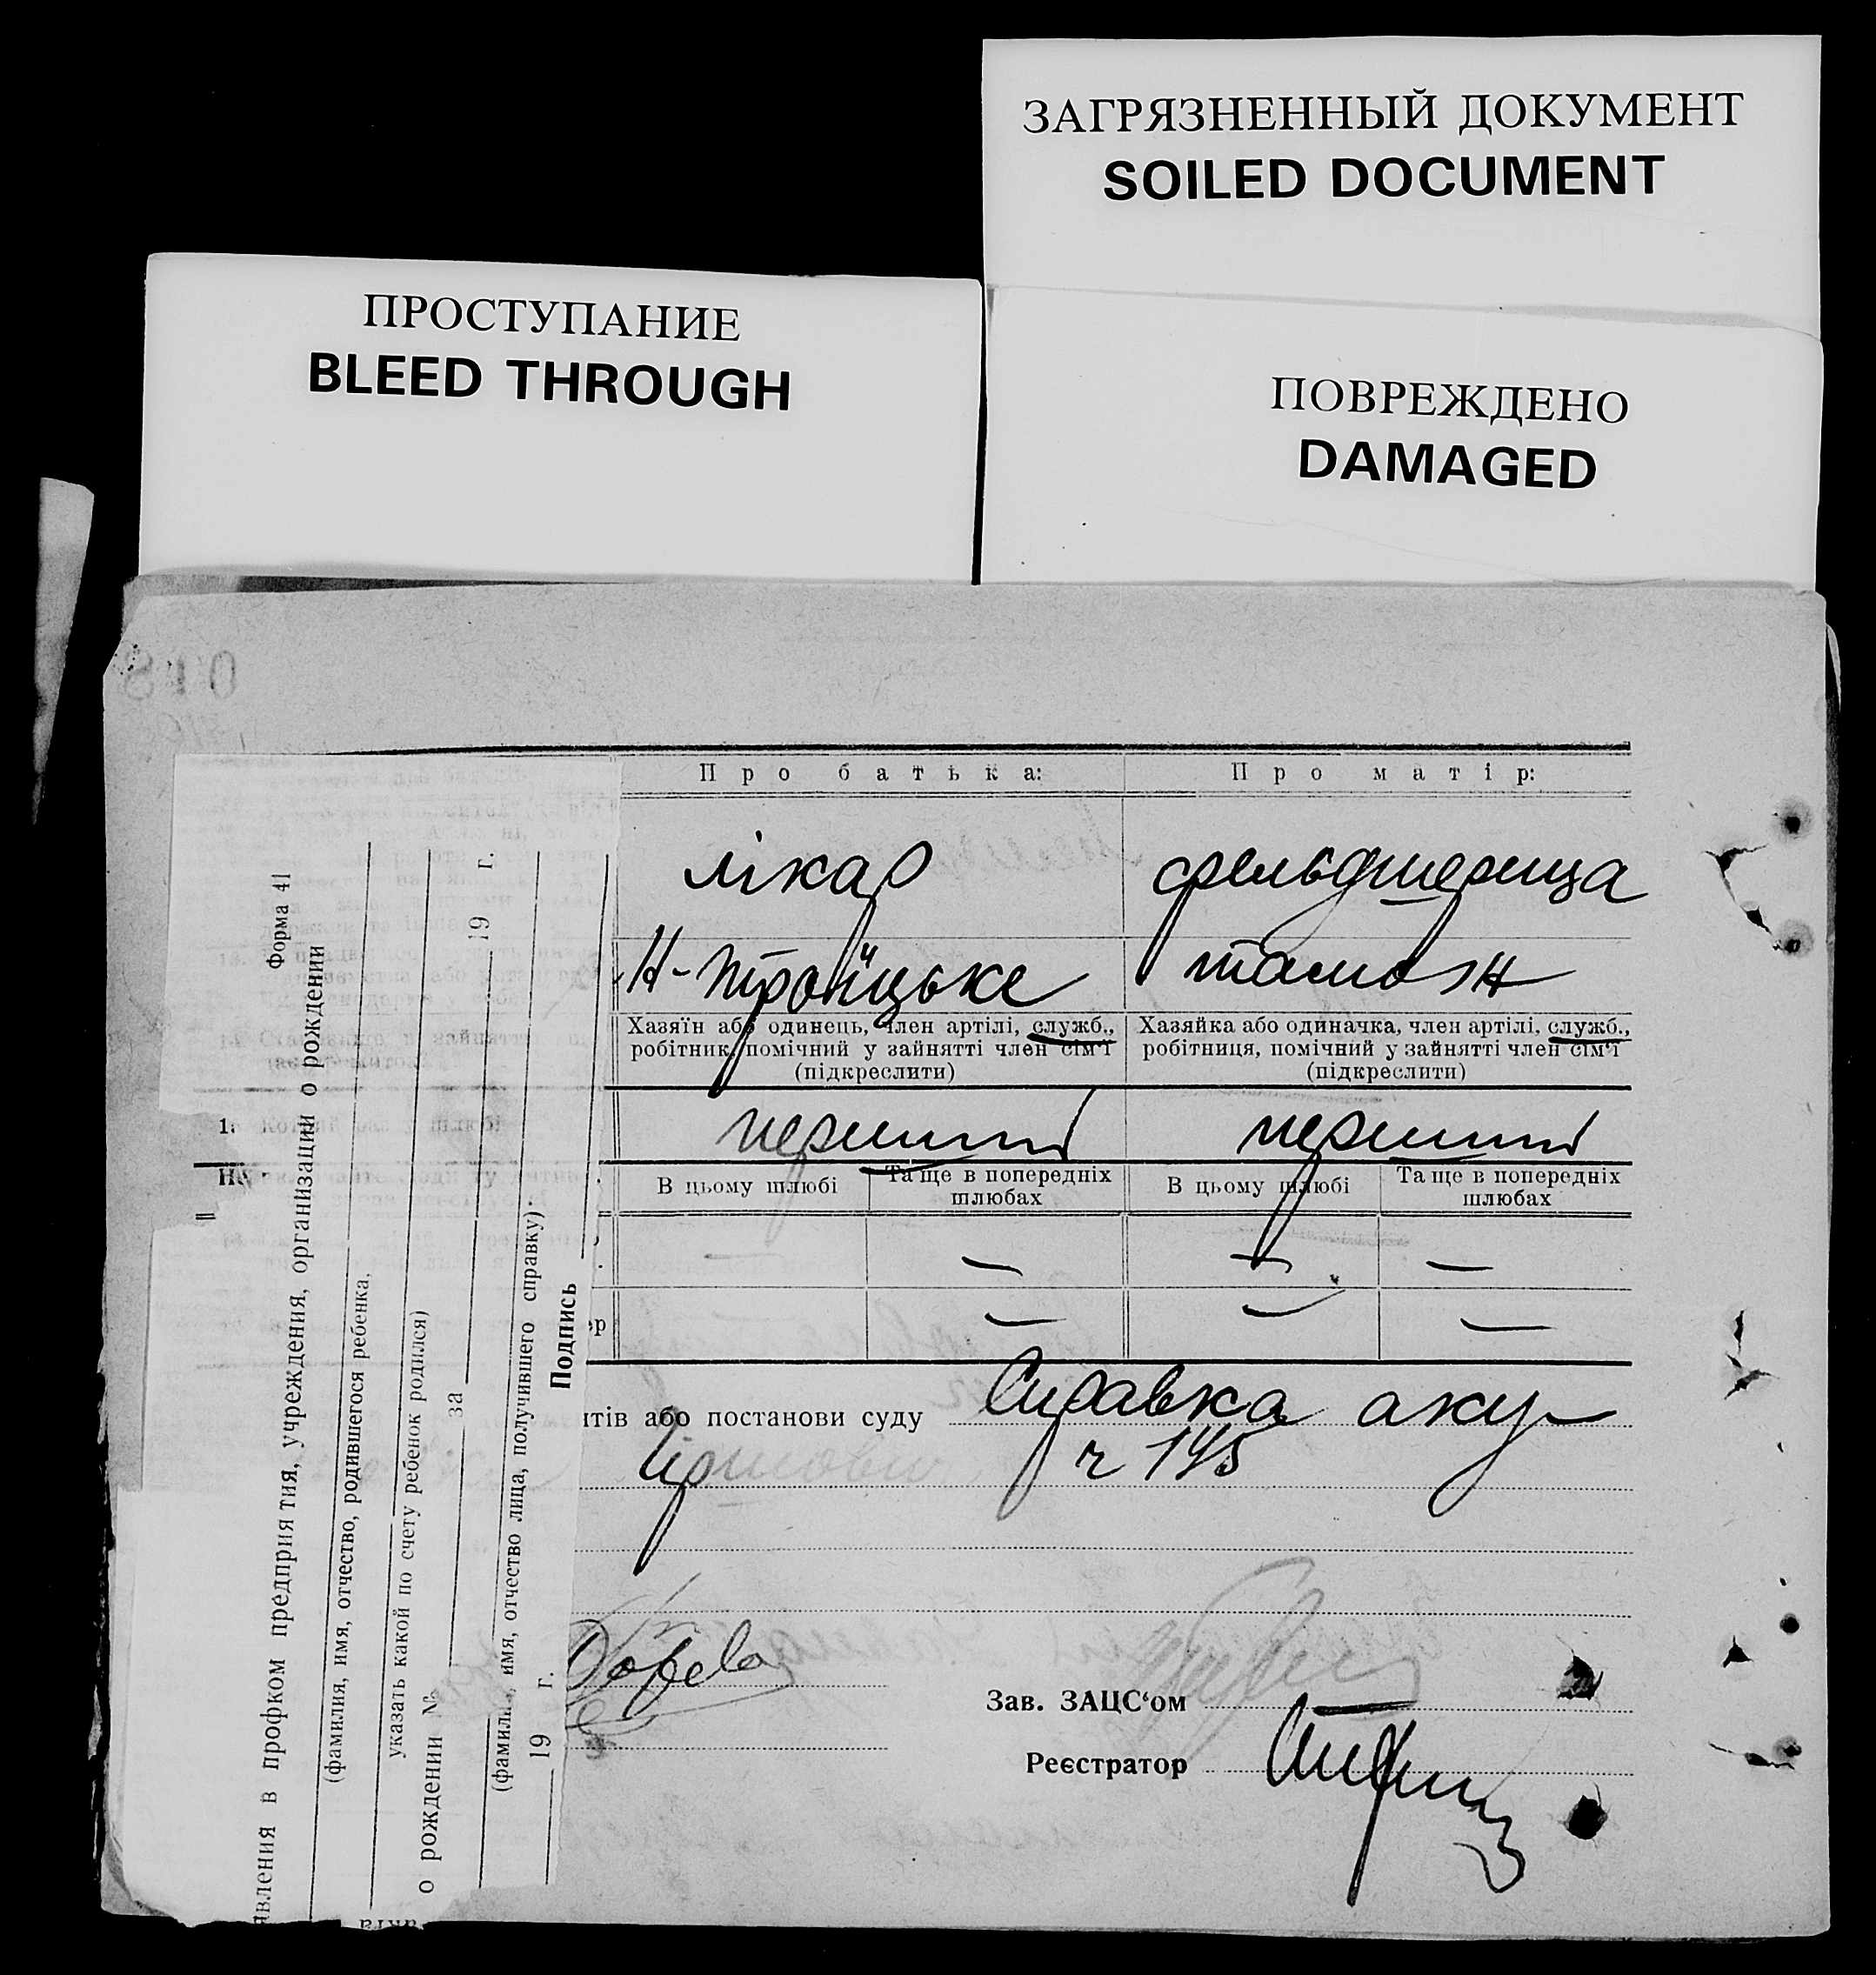 ЗАГРЯЗНЕННЫЙ ДОКУМЕНТ
SOILED DOCUMENT
ПРОСТУПАНИЕ
BLEED THROUGH
ПОВРЕЖДЕНО
DAMAGED
Про батька: Про матір:
лікар фельдшерица
Н-Троїцьке
Хазяїн або одинець, член артілі, служб., Хазяйка або одиначка, член артілі, служб.,
робітник, помічний у зайнятті член сім'ї робітниця, помічний у зайнятті член сім'ї
(підкреслити) (підкреслити)
перший перший
В цьому шлюбі Та ще в попередніх В цьому шлюбі Та ще в попередніх
шлюбах шлюбах
— — —
— — —
нтів або постанови суду Справка аку-
ч 145
Зав. ЗАЦС‘ом
Реєстратор
Форма 41
явления в профком предприятия, учреждения, организации о рождении
(фамилия, имя, отчество, родившегося ребенка,
указать какой по счету ребенок родился)
о рождении № за 19 г.
(фамилия, имя, отчество лица, получившего справку)
19 г. Подпись